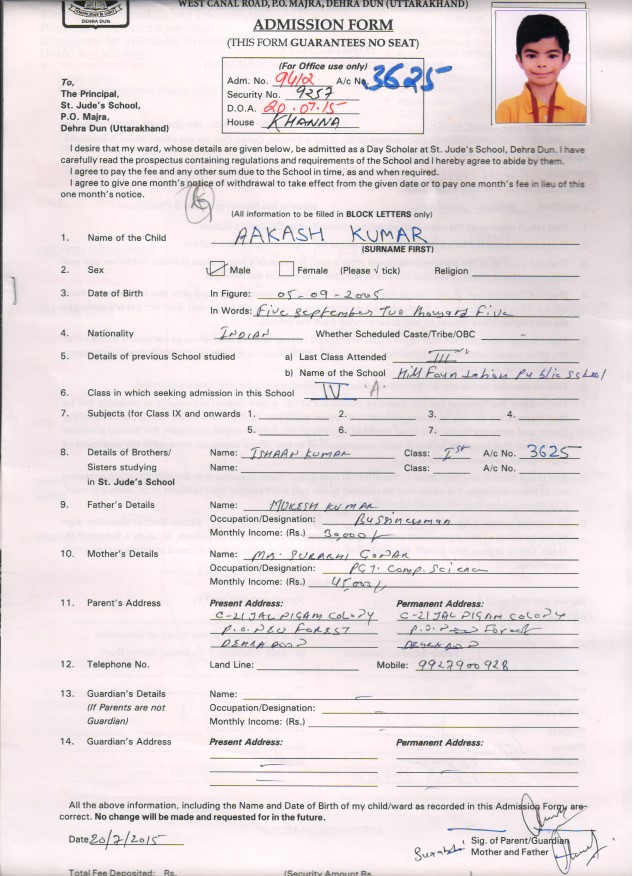 DEHRA DUN
WEST CANAL ROAD, P.O. MAJRA, DEHRA DUN (UTTARAKHAND)
ADMISSION FORM
(THIS FORM GUARANTEES NO SEAT)
(For Office use only)
Adm. No. 9412 A/c No. 3625
Security No. 9257
D.O.A. 20.07.15
House KHANNA
To,
The Principal,
St. Jude's School,
P.O. Majra,
Dehra Dun (Uttarakhand)
I desire that my ward, whose details are given below, be admitted as a Day Scholar at St. Jude's School, Dehra Dun. I have
carefully read the prospectus containing regulations and requirements of the School and I hereby agree to abide by them.
I agree to pay the fee and any other sum due to the School in time, as and when required.
I agree to give one month's notice of withdrawal to take effect from the given date or to pay one month's fee in lieu of this
one month's notice.
(All information to be filled in BLOCK LETTERS only)
1. Name of the Child AAKASH KUMAR
(SURNAME FIRST)
2. Sex Male Female (Please √ tick) Religion
3. Date of Birth In Figure: 05-09-2005
In Words: Five September Two thousand Five
4. Nationality INDIAN Whether Scheduled Caste/Tribe/OBC -
5. Details of previous School studied a) Last Class Attended III
b) Name of the School Hill Foundation Public School
6. Class in which seeking admission in this School IV 'A'
7. Subjects (for Class IX and onwards 1. 2. 3. 4.
5. 6. 7.
8. Details of Brothers/ Name: ISHAAN KUMAR Class: Ist A/c No. 3625
Sisters studying Name: Class: A/c No.
in St. Jude's School
9. Father's Details Name: MUKESH KUMAR
Occupation/Designation: Businessman
Monthly Income: (Rs.) 30,000/-
10. Mother's Details Name: Mrs. SURABHI
Occupation/Designation: PGT. Comp. Science
Monthly Income: (Rs.) 45,000/-
11. Parent's Address Present Address: Permanent Address:
C-21 JAL NIGAM COLONY C-21 JAL NIGAM COLONY
P.O. NEW FOREST P.O. New Forest
DEHRADOON DEHRADOON
12. Telephone No. Land Line: Mobile: 9927900928
13. Guardian's Details Name:
(If Parents are not Occupation/Designation:
Guardian) Monthly Income: (Rs.)
14. Guardian's Address Present Address: Permanent Address:
All the above information, including the Name and Date of Birth of my child/ward as recorded in this Admission Form are
correct. No change will be made and requested for in the future.
Date 20/7/2015 Sig. of Parent/Guardian
Surabhi Mother and Father
Total Fee Deposited: Rs. (Security Amount Rs. )